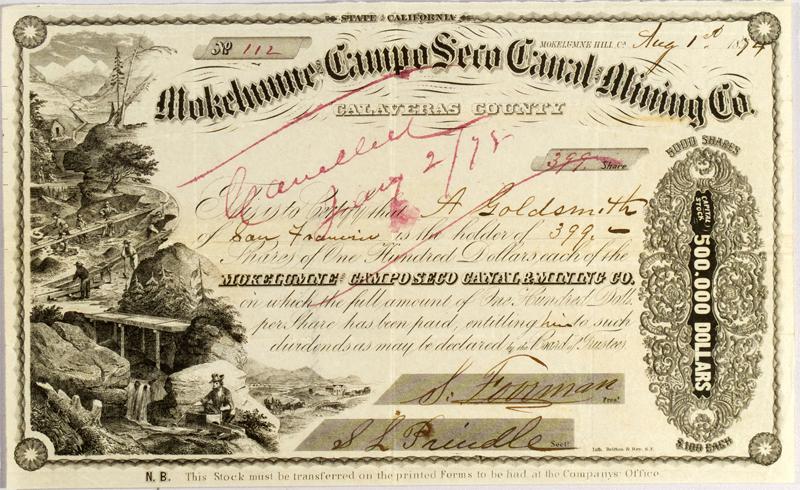 STATE OF CALIFORNIA
No 112
MOKELUMNE HILL, Co. Aug 1st 1874
Mokelumne and Campo Seco Canal and Mining Co.
CALAVERAS COUNTY
5000 SHARES
Cancelled
Jany 2/78
399. Share
This is to Certify that A Goldsmith
of San Francisco is the holder of 399.-
Shares of One Hundred Dollars each of the
MOKELUMNE AND CAMPO SECO CANAL & MINING CO.
on which the full amount of One Hundred Dolls.
per Share has been paid, entitling him to such
dividends as may be declared by the Board of Trustees
CAPITAL STOCK
500.000 DOLLARS
$100 EACH
S. Foorman
Prest.
S L Prindle
Secty.
Lith. Britton & Rey. S.F.
N. B. This Stock must be transferred on the printed Forms to be had at the Companys' Office